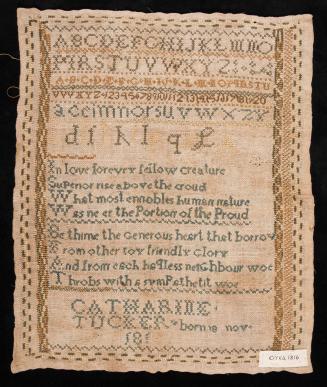 ABCDEFGHIJKLMNO
PIRSTUVWXYZ
A·B·C·D·E·F·G·H·I·J·K·L·M·N·O·P·Q·R·S·T·U
VWXYZ1234567891011121314151617181920
aceimnorsuvwxzy
df h l q L
In love forevry fellow creature
Superior rise above the croud
What most ennobles human nature
Was neer the Portion of the Proud
Be thine the Generous heart that borrow
From other toy friendly Glory
And from each hapless neighbour woe
Throbs with a symPathetit woe
CATHARINE
TUCKER born is nov
181
CIRCA 1816